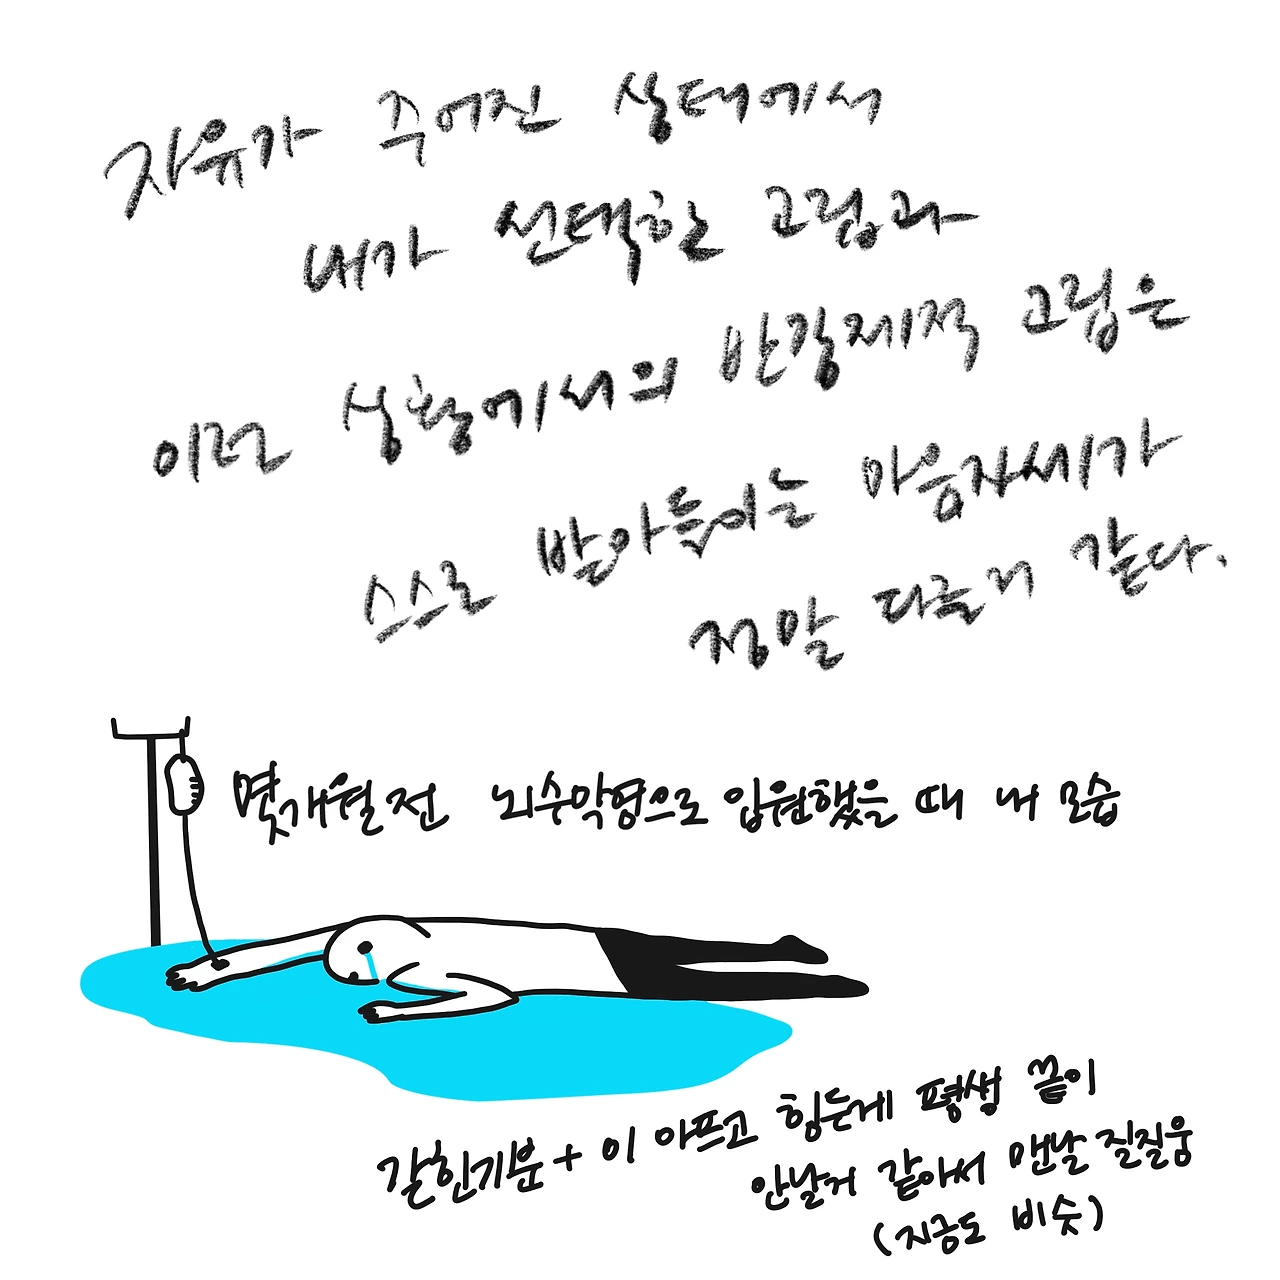 자유가 주어진 상태에서
내가 선택한 고립과
이런 상황에서의 반강제적 고립은
스스로 받아들이는 마음자세가
정말 다를거 같다.
몇개월전 뇌수막염으로 입원했을 때 내 모습
갇힌기분 + 이 아프고 힘든게 평생 끝이
안날거 같아서 맨날 질질움
(지금도 비슷)